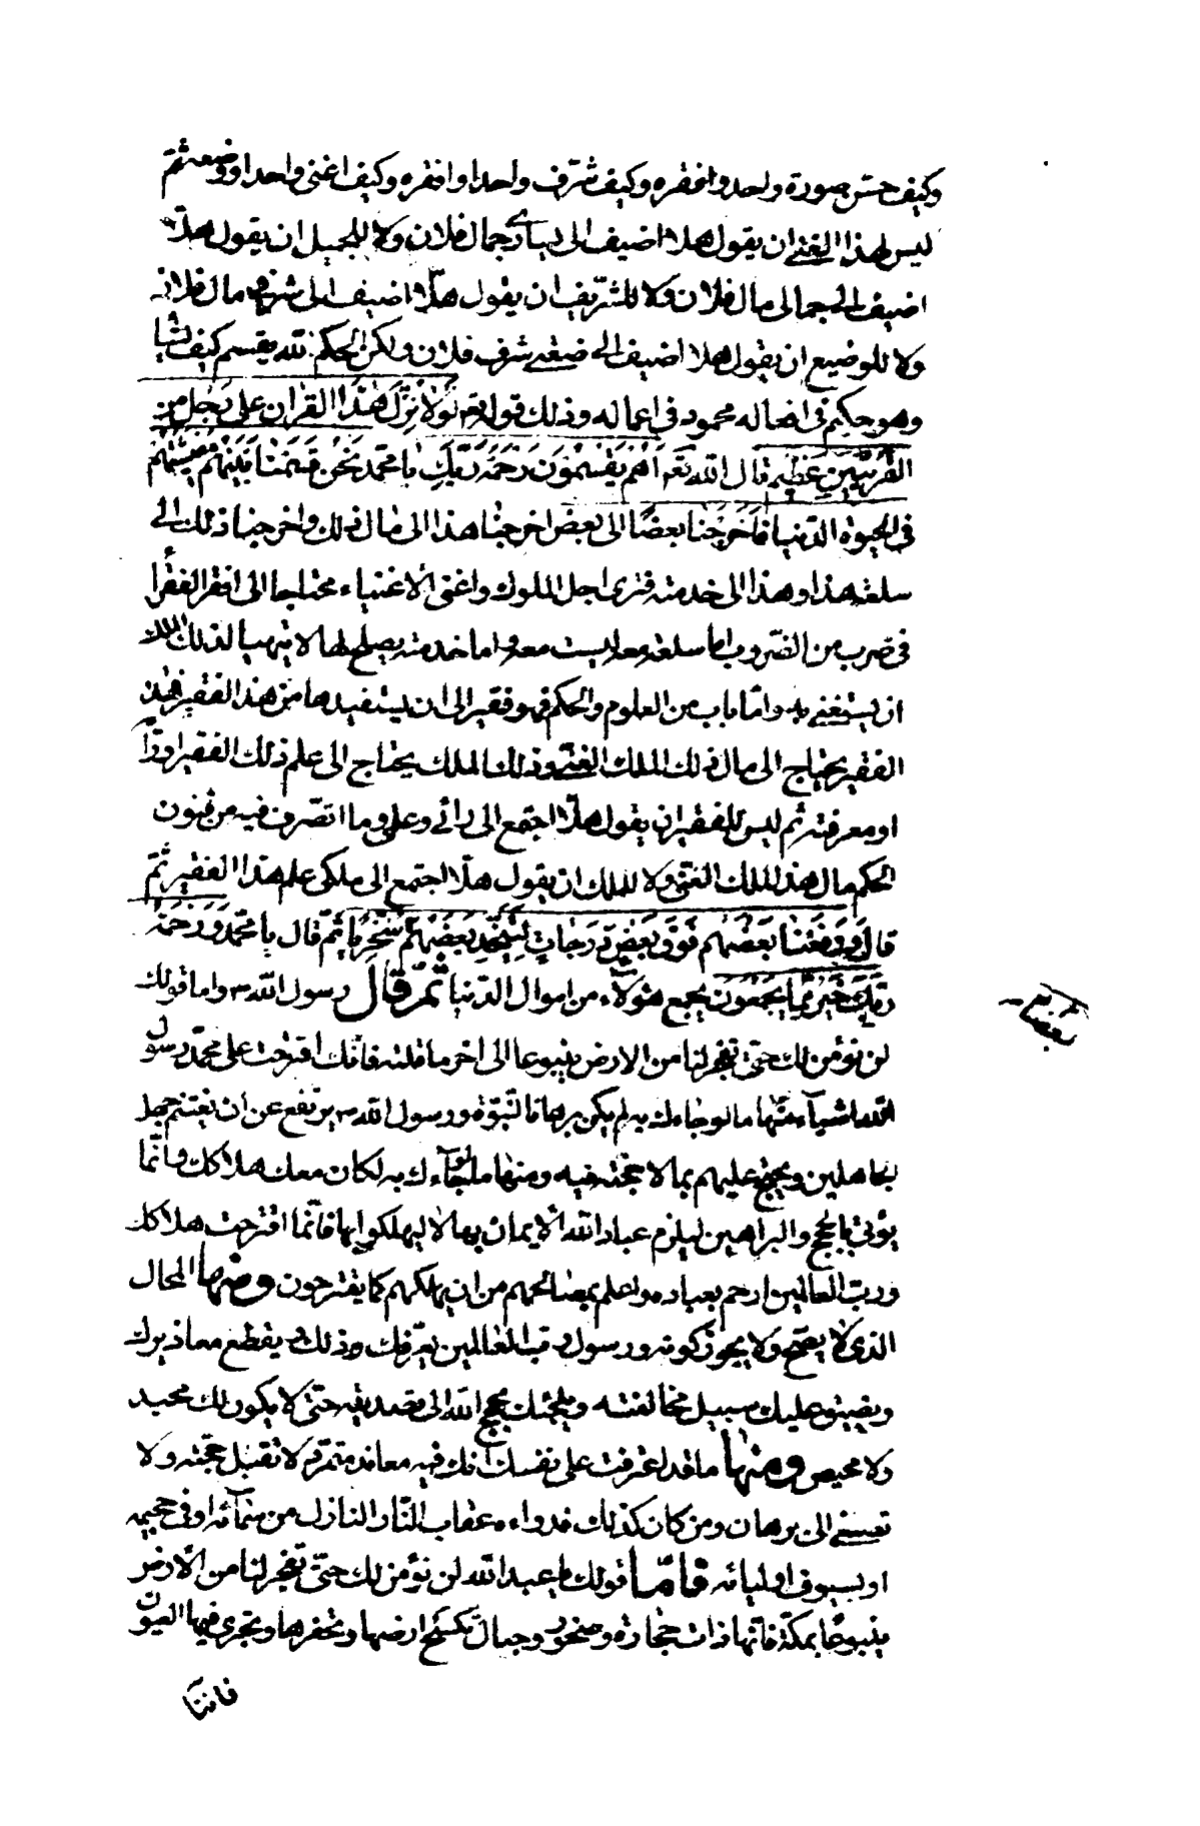 وكيف حسّن صورة واحد وافقره وكيف شرّف واحدا وافقره وكيف اغنى واحدا ووضعه ثمّ
ليس لهذا الغنى ان يقول هلا اضيف الى يسارى جمال فلان ولا للجميل ان يقول هلّا
اضيف الى جمالى مال فلان ولا للشّريف ان يقول هلّا اضيف الى شرفى مال فلان
ولا للوضيع ان يقول هلا اضيف الى ضعتى شرف فلان ولكن الحكم لله يقسم كيف يشا
وهو حكيم فى افعاله محمود فى اعماله وذلك قوله تع لَولا نُزِّلَ هٰذَا القُرآن عَلى رَجُل مِن
القَريَتَينِ عَظيم قال الله تع اَهُم يَقسِمُونَ رَحمَة رَبِّكَ يا محمّد نَحنُ قَسَمنا بَينَهُم مَعيشَتَهُم
فى الحيوة الدّنيا فاَحوَجنا بعضًا الى بعض احوجنا هذا الى مال ذلك واحوجنا ذلك الى
سلعة هذا وهذا الى خدمته فترى اجل الملوك واغنى الاغنياء محتاجا الى افقر الفقرا
فى ضرب من الضّروب اما سلعة معه ليست معه واما خدمته يصلح لها لا يتهيا لذلك الملك
ان يستغنى به واما باب من العلوم والحكم فهو فقير الى ان يستفيدها من هذا الفقير فهذا
الفقير يحتاج الى مال ذلك الملك الغنىّ وذلك الملك يحتاج الى علم ذلك الفقير او رأ
او معرفته ثم ليس للفقير ان يقول هلّا اجتمع الى رائى وعلمى وما اتصّرف فيه من فنون
الحكم مال هذا الملك الغنى ولا للملك ان يقول هلّا اجتمع الى ملكى علم هذا الفقير ثمّ
قال وَرَفَعنا بَعضَهُم فَوقَ بَعضٍ دَرَجاتٍ لِيَتَّخِذ بَعضُهُم بَعضًا سُخرِيّا ثمّ قال يا محمّد وَرَحمَة
رَبِّكَ خَيرٌ مِمّا يَجمَعُونَ يجمع هؤلاء من اموال الدّنيا ثمّ قال رسول الله ص واما قولك
لن نؤمن لك حتىّ تفجر لنا من الارض ينبوعا الى اخر ما قلته فانّك اقترحت على محمّد رسول
الله اشياء منها ما لو جاءك به لم يكن برهانا لنبوّته ورسول الله ص يرتفع عن ان يغتنم جهل
الجاهلين ويحتج عليهم بما لا حجّة فيه ومنها ما لو جاءك به لكان معك هلاكك وانّما
يؤتى بالحجج والبراهين ليلزم عباد الله الايمان بها لا ليهلكوا بها فانّما اقترحت هلاكك
وربّ العالمين ارحم بعباده واعلم بمصالحهم من ان يهلكهم كما يقترحون ومنها المحال
الذى لا يصّح ولا يجوز كونه ورسول ربّ العالمين يعرّفك وذلك ويقطع معاذيرك
ويضيق عليك سبيل مخالفته ويلجئك بحجج الله الى تصديقه حتىّ لا يكون لك محيد
ولا محيص ومنها ما قد اعترفت على نفسك انك فيه معاند متمرّد لا تقبل حجّة ولا
تصغى الى برهان ومن كان كذلك فدواءه عقاب النّار النازل من سمآئه او فى جحيمه
او بسيوف اوليائه فامّا قولك يا عبد الله لن نؤمن لك حتىّ تفجر لنا من الارض
ينبوعًا بمكّة فانّها ذات حجارة وصخور وجبال تكسح ارضها وتحفرها وتجرى فيها العيون
فاننا
بعضًا